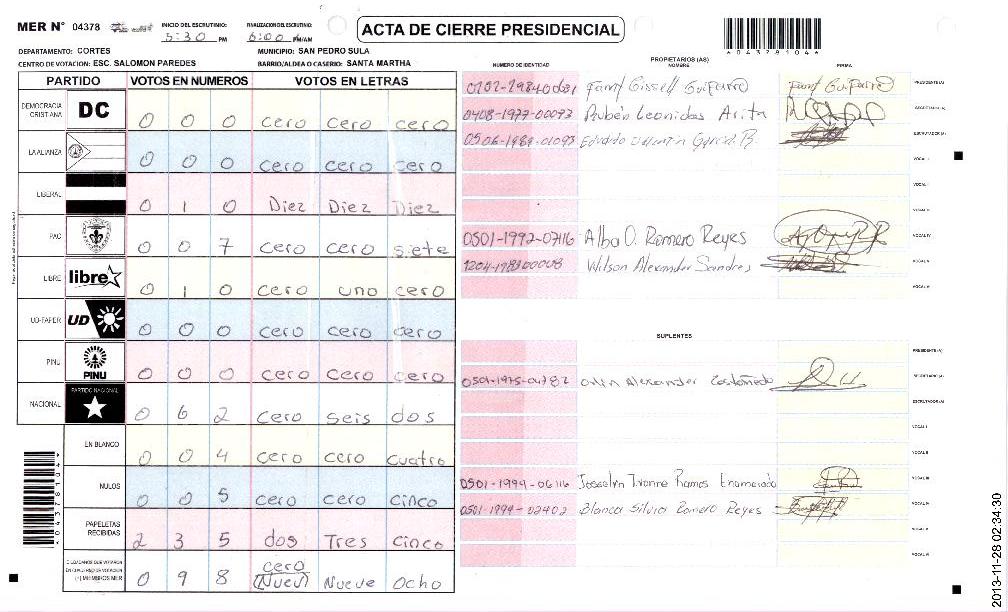 MER N° 04378
INICIO DEL ESCRUTINIO: 5:30 PM
FINALIZACION DEL ESCRUTINIO: 6:00 PM/AM
ACTA DE CIERRE PRESIDENCIAL
*04378104*
DEPARTAMENTO: CORTES
MUNICIPIO: SAN PEDRO SULA
CENTRO DE VOTACION: ESC. SALOMON PAREDES
BARRIO/ALDEA O CASERIO: SANTA MARTHA
PARTIDO VOTOS EN NUMEROS VOTOS EN LETRAS
DEMOCRACIA CRISTIANA DC 0 0 0 cero cero cero
LA ALIANZA 0 0 0 cero cero cero
LIBERAL 0 1 0 Diez Diez Diez
PAC 0 0 7 cero cero siete
LIBRE libre 0 1 0 cero uno cero
UD-FAPER UD 0 0 0 cero cero cero
PINU PINU 0 0 0 cero cero cero
NACIONAL PARTIDO NACIONAL 0 6 2 cero seis dos
EN BLANCO 0 0 4 cero cero cuatro
NULOS 0 0 5 cero cero cinco
PAPELETAS RECIBIDAS 2 3 5 dos Tres cinco
CIUDADANOS QUE VOTARON
(+) MIEMBROS MER 0 9 8 cero (Nuev) Nueve Ocho
*04378104*
PROPIETARIOS (AS)
NUMERO DE IDENTIDAD NOMBRE FIRMA
Gissell Guifarro PRESIDENTE(A)
0408-1977-00093 Rubén Leonidas Arita SECRETARIO(A)
0506-1989-01093 ESCRUTADOR(A)
VOCAL I
VOCAL II
VOCAL III
0501-1992-07116 Alba O. Romero Reyes VOCAL IV
Wilson Alexander Sandres VOCAL V
VOCAL VI
SUPLENTES
PRESIDENTE(A)
Alexander Castañeda SECRETARIO(A)
ESCRUTADOR(A)
VOCAL I
VOCAL II
0501-1994-06116 Josselyn Ivonne Ramos Enamorado VOCAL III
0501-1994-02402 Blanca Silvia Romero Reyes VOCAL IV
VOCAL V
VOCAL VI
2013-11-28 02:34:30